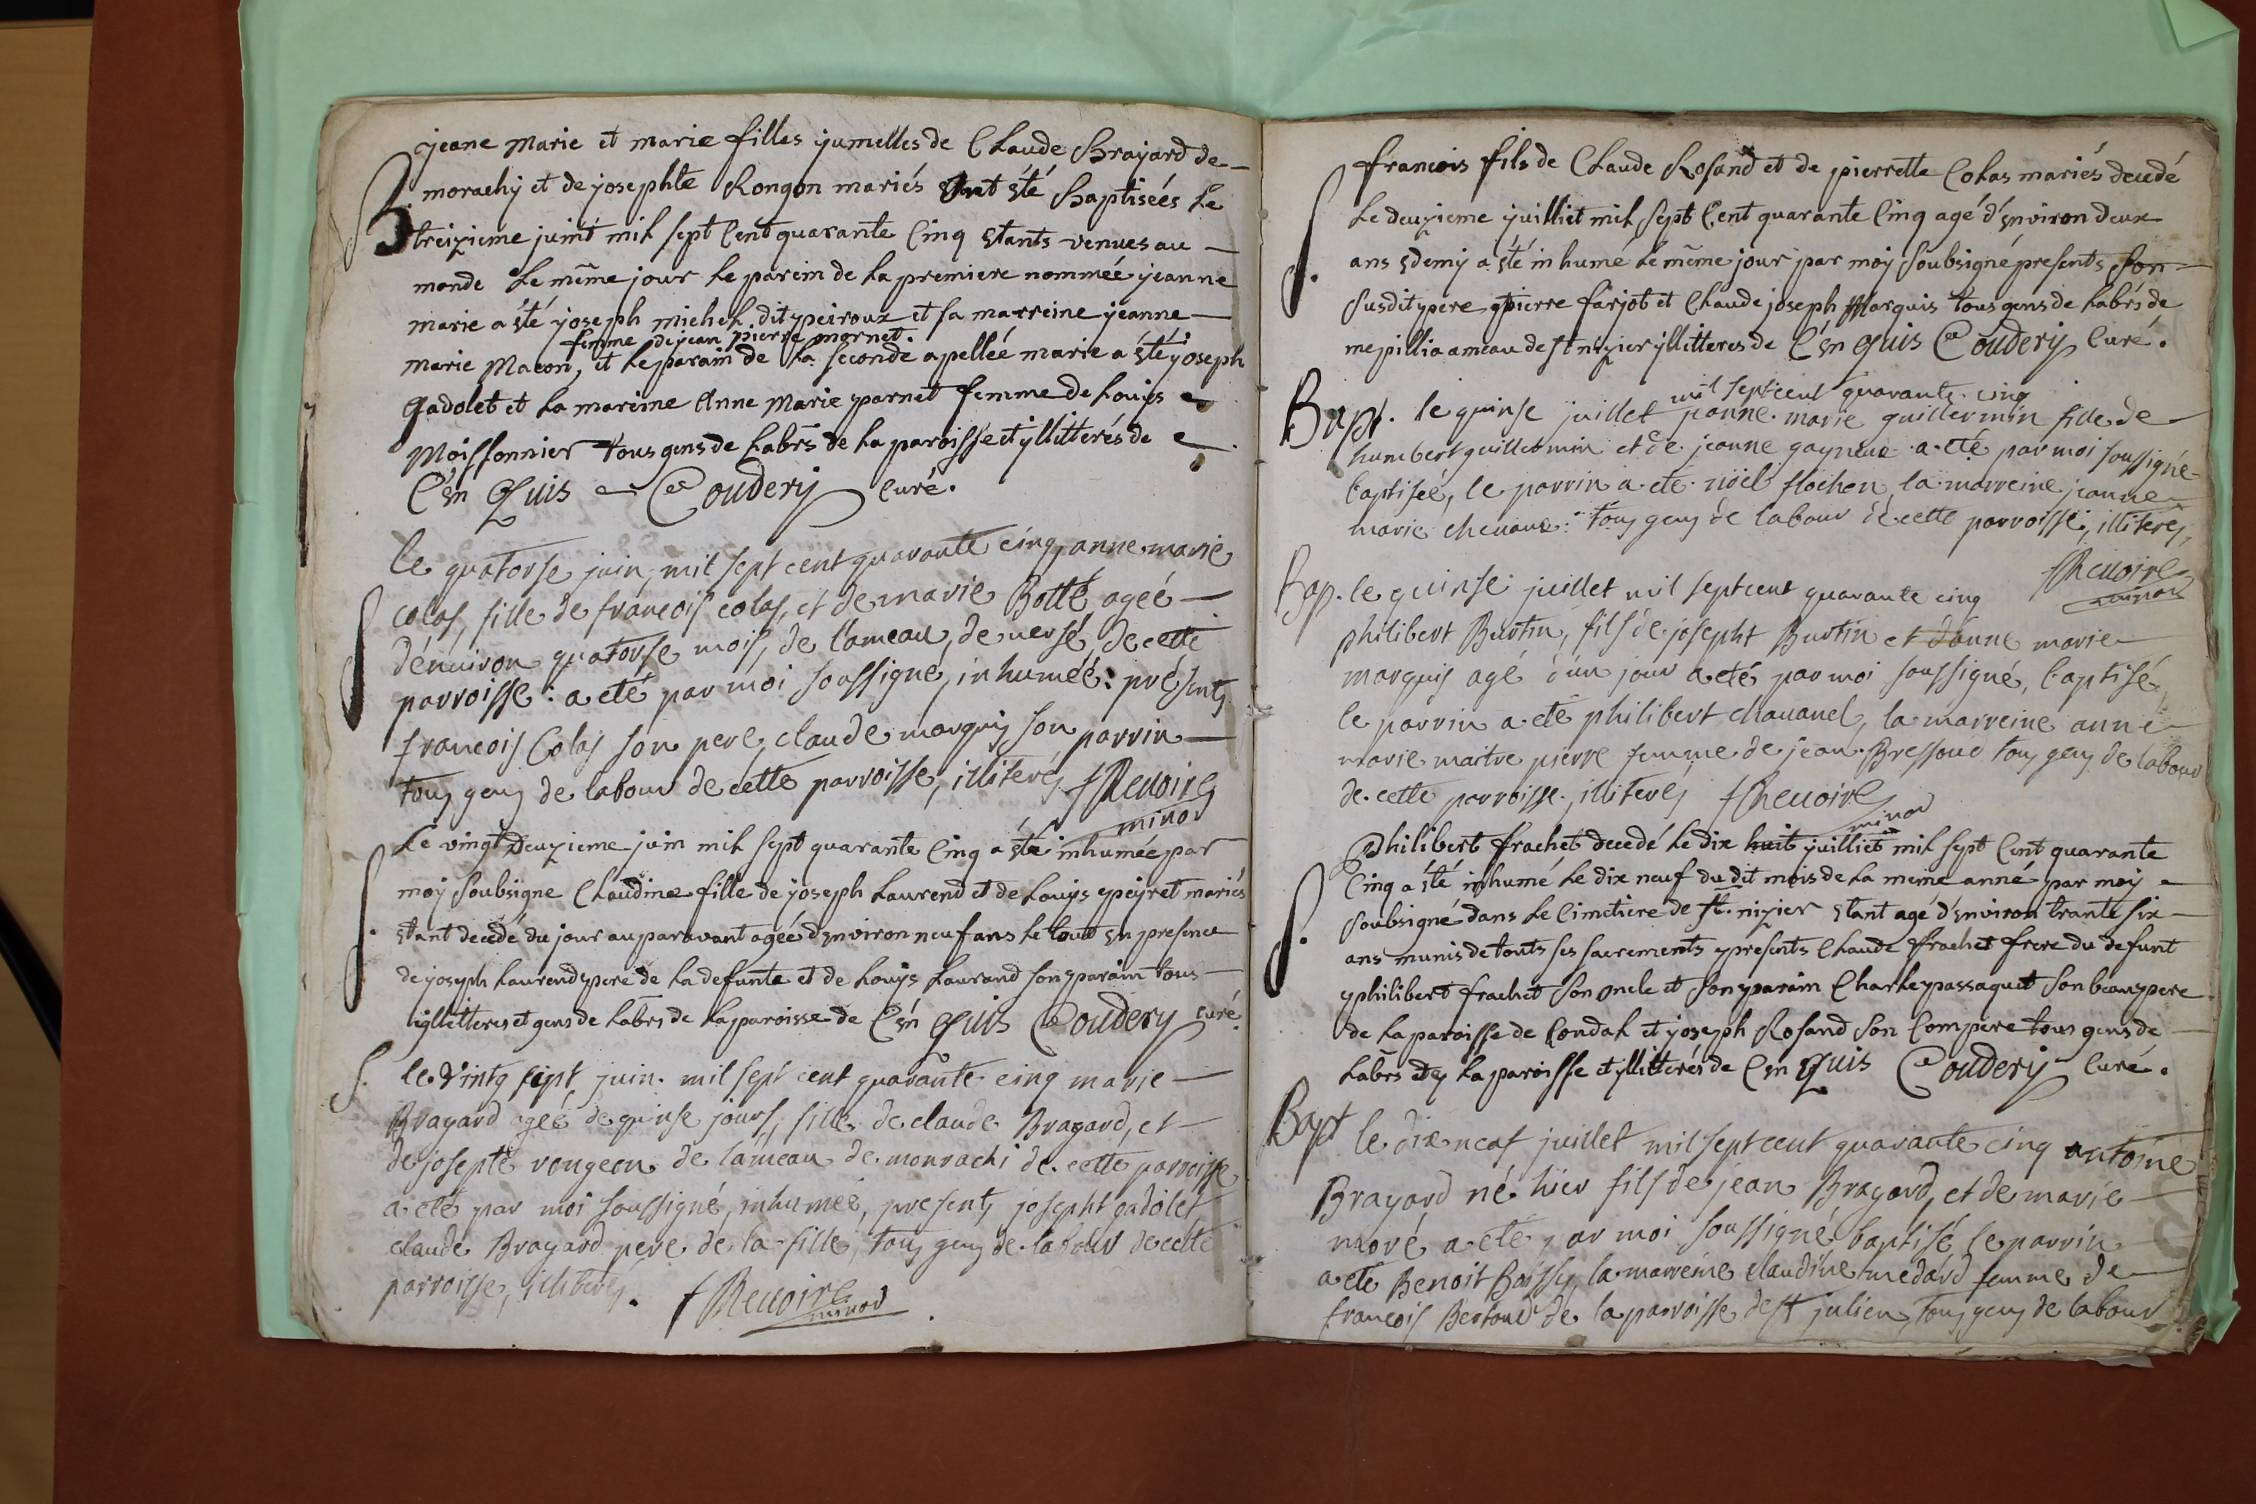 B.
jeane marie et marie filles jumelles de Claude Brayard de
morachy et de josephte Rongon mariés ont été baptisées le
treizieme juint mil sept cent quarante cinq etants venues au
monde le même jour le parein de la premiere nommée jeanne
marie a été joseph michel dit peiroux et sa marreine jeanne
femme de jean pierre mornet.
marie Macon, et le parain de la seconde apelleé marie a été joseph
gadolet et la mareine Anne Marie parnet femme de Louys
Moissonnier tous gens de labrs de la paroisse et yllitterés de
C'en Quis Coudery curé.
le quatorse juin, mil sept cent quarante cinq, anne marie
colas, fille de francois colas, et de marie Botté ageé
d'enuiron quatorse mois, de l'ameau, de uersé, de cette
parroisse: a eté par moi soussigné, inhumeé: présents
francois Colas son pere, claude marquis son parrin
tous gens de labour de cette parroisse, illiterés fRenoire
minor
S.
Le vingt deuzieme juin mil sept quarante cinq a été inhumée par
moy soubsigne Claudine fille de joseph Laurend et de Louys peyret mariés
etant decedé du jour auparavant agée d'environ neuf ans le tout en presence
de joseph Laurend pere de la defunte et de Louys Laurand son parain tous
yllitteres et gens de labrs de la paroisse de C'en Quis Coudery curé.
S.
le Vintg sept juin. mil sept cent quarante cinq marie
Brayard ageé de quinse jours, fille de claude Brayard, et
de josepte rongeon de l'ameau de monrachi de cette parroisse
a eté par moi soussigné, inhumeé, presents josepht gadolet
claude Brayard pere de la fille, tous gens de labour de cette
parroisse, illiterés. fRenoire
minor
S.
francois fils de Claude Rosand et de pierrette Colas mariés decedé
Le deuzieme juilliet mil sept cent quarante cinq agé d'environ deux
ans edemy a été inhumé le même jour par moy soubsigné presents son
susdit pere pierre farjot et Claude joseph Marquis tous gens de labrs de
mepillia ameau de st nizier yllitteres de C'en Quis Coudery curé.
mil sept cent quarante cinq
Bapt. le quinse juillet jeanne marie guillermin fille de
humbert guillermin et de jeanne gayneue a eté par moi soussigné
baptiseé, le parrin a eté nöel flochon, la marreine jeanne
marie chenaux: tous gens de labour de cette parroisse, illiterés,
fRenoire
minor
Bap. le quinse juillet mil sept cent quarante cinq
philibert Burtin, fils de josepht Burtin et danne marie
marquis agé d'un jour a eté par moi soussigné, baptisé,
le parrin a eté philibert chauanel, la marreine anne
marie maitre pierre femme de jean Bressoud tous gens de labour
de cette parroisse, illiterés fRenoire
minor
S.
Philibert frachet decedé le dix huit juilliet mil sept cent quarante
cinq a été inhumé le dix neuf du dit mois de la meme anné par moy
soubsigné dans le Cimetiere de st. nizier etant agé d'environ trante six
ans munis de touts ses sacrements presents Claude frachet frere du defunt
philibert frachet son oncle et son parain Charle passaquet son beaupere
de la paroisse de Condal et joseph Rosand son compere tous gens de
labrs de la paroisse et yllitterés de C'en Quis Coudery curé.
Bapt le dix neaf juillet mil sept cent quarante cinq antoine
Brayard né hier fils de jean Brayard, et de marie
moré a eté par moi soussigné baptisé, le parrin
a eté Benoit Boissy, la marreine claudine medard femme de
francois Bertoud de la parroisse de st julien, tous gens de labour